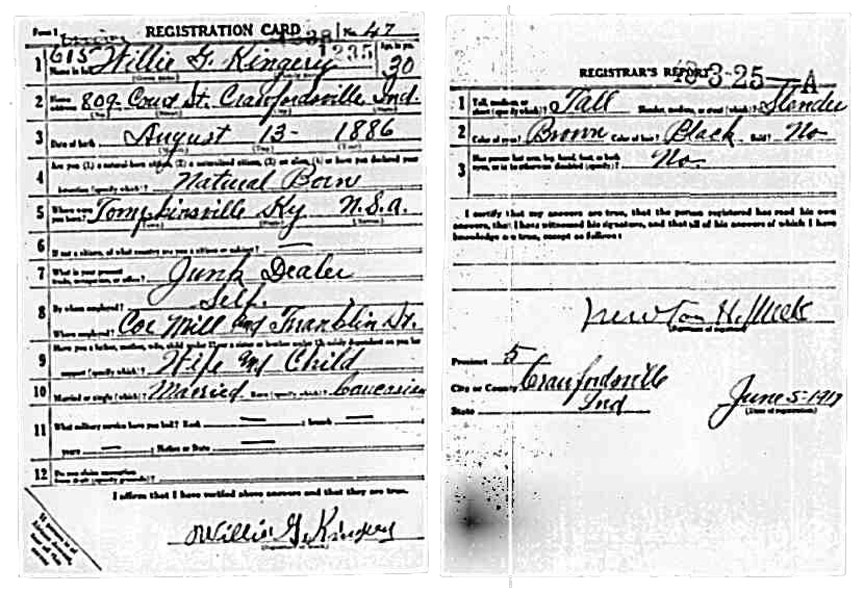 Form 1 REGISTRATION CARD No. 47
1338
615 1235 Age, in yrs.
1 Name in full Willie G. Kingery 30
2 Home address 809 Court St. Crawfordsville Ind.
3 Date of birth August 13 1886
4 Are you (1) a natural-born citizen, (2) a naturalized citizen, (3) an alien, (4) or have you declared your
intention (specify which)? Natural Born
5 Where were you born? Tompkinsville Ky U.S.A.
6 If not a citizen, of what country are you a citizen or subject? —
7 What is your present trade, occupation, or office? Junk Dealer
8 By whom employed? Self.
Where employed? Coe Mill and Franklin St.
9 Have you a father, mother, wife, child under 12, or a sister or brother under 12, solely dependent on you for
support (specify which)? Wife and Child
10 Married or single (which)? Married Race (specify which)? Caucasian
11 What military service have you had? Rank — ; branch —
years — ; Nation or State —
12 Do you claim exemption from draft (specify grounds)?
I affirm that I have verified above answers and that they are true.
Willie G. Kingery
(Signature or mark)
REGISTRAR'S REPORT 13-3-25-A
1 Tall, medium, or short (specify which)? Tall Slender, medium, or stout (which)? Slender
2 Color of eyes? Brown Color of hair? Black Bald? No
3 Has person lost arm, leg, hand, foot, or both eyes, or is he otherwise disabled (specify)? No
I certify that my answers are true, that the person registered has read his own
answers, that I have witnessed his signature, and that all of his answers of which I have
knowledge are true, except as follows:
Newton H. Meek
(Signature of registrar)
Precinct 5
City or County Crawfordsville
State Ind
June 5-1917
(Date of registration)